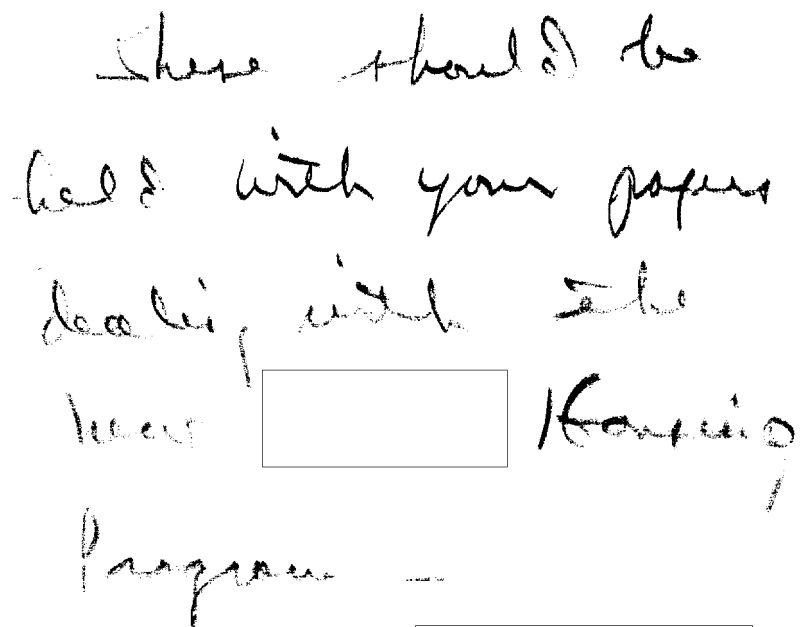 These should be
held with your papers
dealing with the
new Housing
Program –